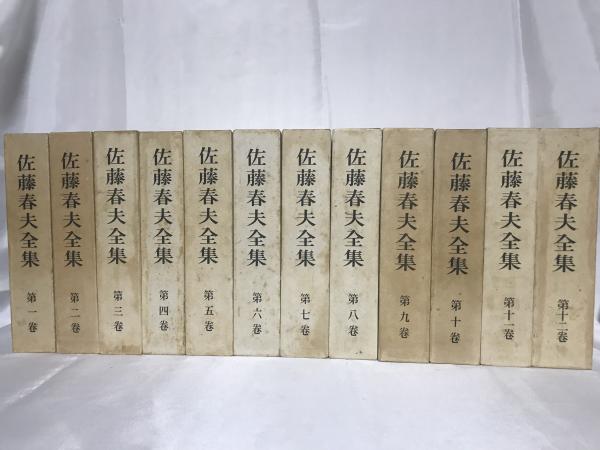 佐藤春夫全集 第一卷
佐藤春夫全集 第二卷
佐藤春夫全集 第三卷
佐藤春夫全集 第四卷
佐藤春夫全集 第五卷
佐藤春夫全集 第六卷
佐藤春夫全集 第七卷
佐藤春夫全集 第八卷
佐藤春夫全集 第九卷
佐藤春夫全集 第十卷
佐藤春夫全集 第十一卷
佐藤春夫全集 第十二卷